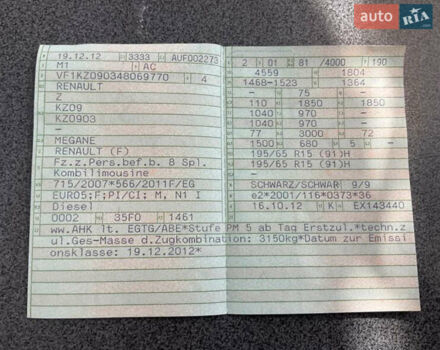 auto RIA.com
19.12.12 3333 AUF002273
M1 AC
VF1KZ090348069770 4
RENAULT
Z
KZ09
KZ0903
-
MEGANE
RENAULT (F)
Fz.z.Pers.bef.b. 8 Spl.
Kombilimousine
715/2007*566/2011F/EG
EURO5;F;PI/CI; M, N1 I
Diesel
0002 35F0 1461
2 01 81 /4000 190
4559 1804
1468-1523 1364
- 75 -
110 1850 1850
1040 970 -
1040 970 -
77 3000 72
1500 680 5 -
195/65 R15 (91)H
195/65 R15 (91)H
-
SCHWARZ/SCHWAR 9/9
e2*2001/116*0373*36
16.10.12 K EX143440
ww.AHK lt. EGTG/ABE*Stufe PM 5 ab Tag Erstzul.*techn.z
ul.Ges-Masse d.Zugkombination: 3150kg*Datum zur Emissi
onsklasse: 19.12.2012*